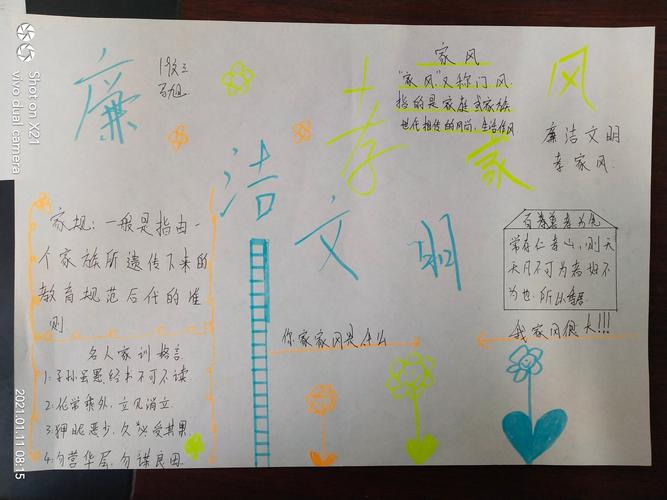 廉洁文明
孝家风
家风
"家风"又称门风,
指的是家庭或家族
世代相传的风尚、生活作风
廉洁文明
孝家风
家规:一般是指由一
个家族所遗传下来的
教育规范后代的准
则
名人家训格言
1.子孙虽愚经书不可不读
2.伦常乖外,立见消亡.
3.狎昵恶少,久必受其累
4.勿营华屋,勿谋良田
百善孝为先
常存仁孝心,则天
不可为者
为也.所以
你家家风是什么
我家风很大!!!
2021.01.11 08:15
Shot on X21
vivo dual camera